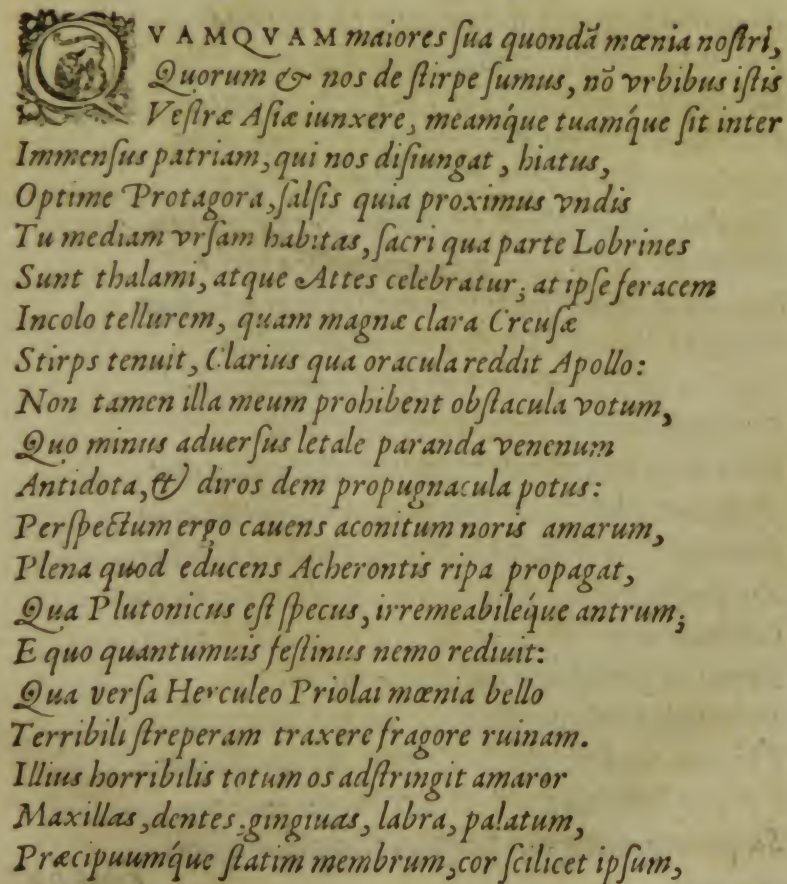 QVAMQVAM maiores ſua quondã mœnia noſtri,
Quorum & nos de ſtirpe ſumus, nõ vrbibus iſtis
Veſtræ Aſiæ iunxere, meamq́ue tuamq́ue ſit inter
Immenſus patriam, qui nos diſiungat, hiatus,
Optime Protagora, ſalſis quia proximus vndis
Tu mediam vrſam habitas, ſacri qua parte Lobrines
Sunt thalami, atque Attes celebratur; at ipſe feracem
Incolo tellurem, quam magnæ clara Creuſæ
Stirps tenuit, Clarius qua oracula reddit Apollo:
Non tamen illa meum prohibent obſtacula votum,
Quo minus aduerſus letale paranda venenum
Antidota, & diros dem propugnacula potus:
Perſpectum ergo cauens aconitum noris amarum,
Plena quod educens Acherontis ripa propagat,
Qua Plutonicus eſt ſpecus, irremeabileq́ue antrum;
E quo quantumuis feſtinus nemo rediuit:
Qua verſa Herculeo Priolai mœnia bello
Terribili ſtreperam traxere fragore ruinam.
Illius horribilis totum os adſtringit amaror
Maxillas, dentes, gingiuas, labra, palatum,
Præcipuumq́ue ſtatim membrum, cor ſcilicet ipſum,